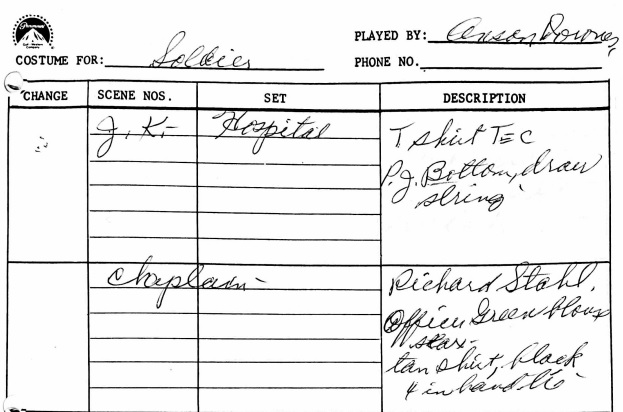 Paramount
A Gulf + Western Company
COSTUME FOR: Soldier
PLAYED BY: Anson Downes
PHONE NO.
CHANGE SCENE NOS. SET DESCRIPTION
J.K.- Hospital
T shirt
P.J. Bottom, draw
string
Chaplain-
Richard Stahl.
Officer Green blouse
tan shirt, black
4 in hand tie-